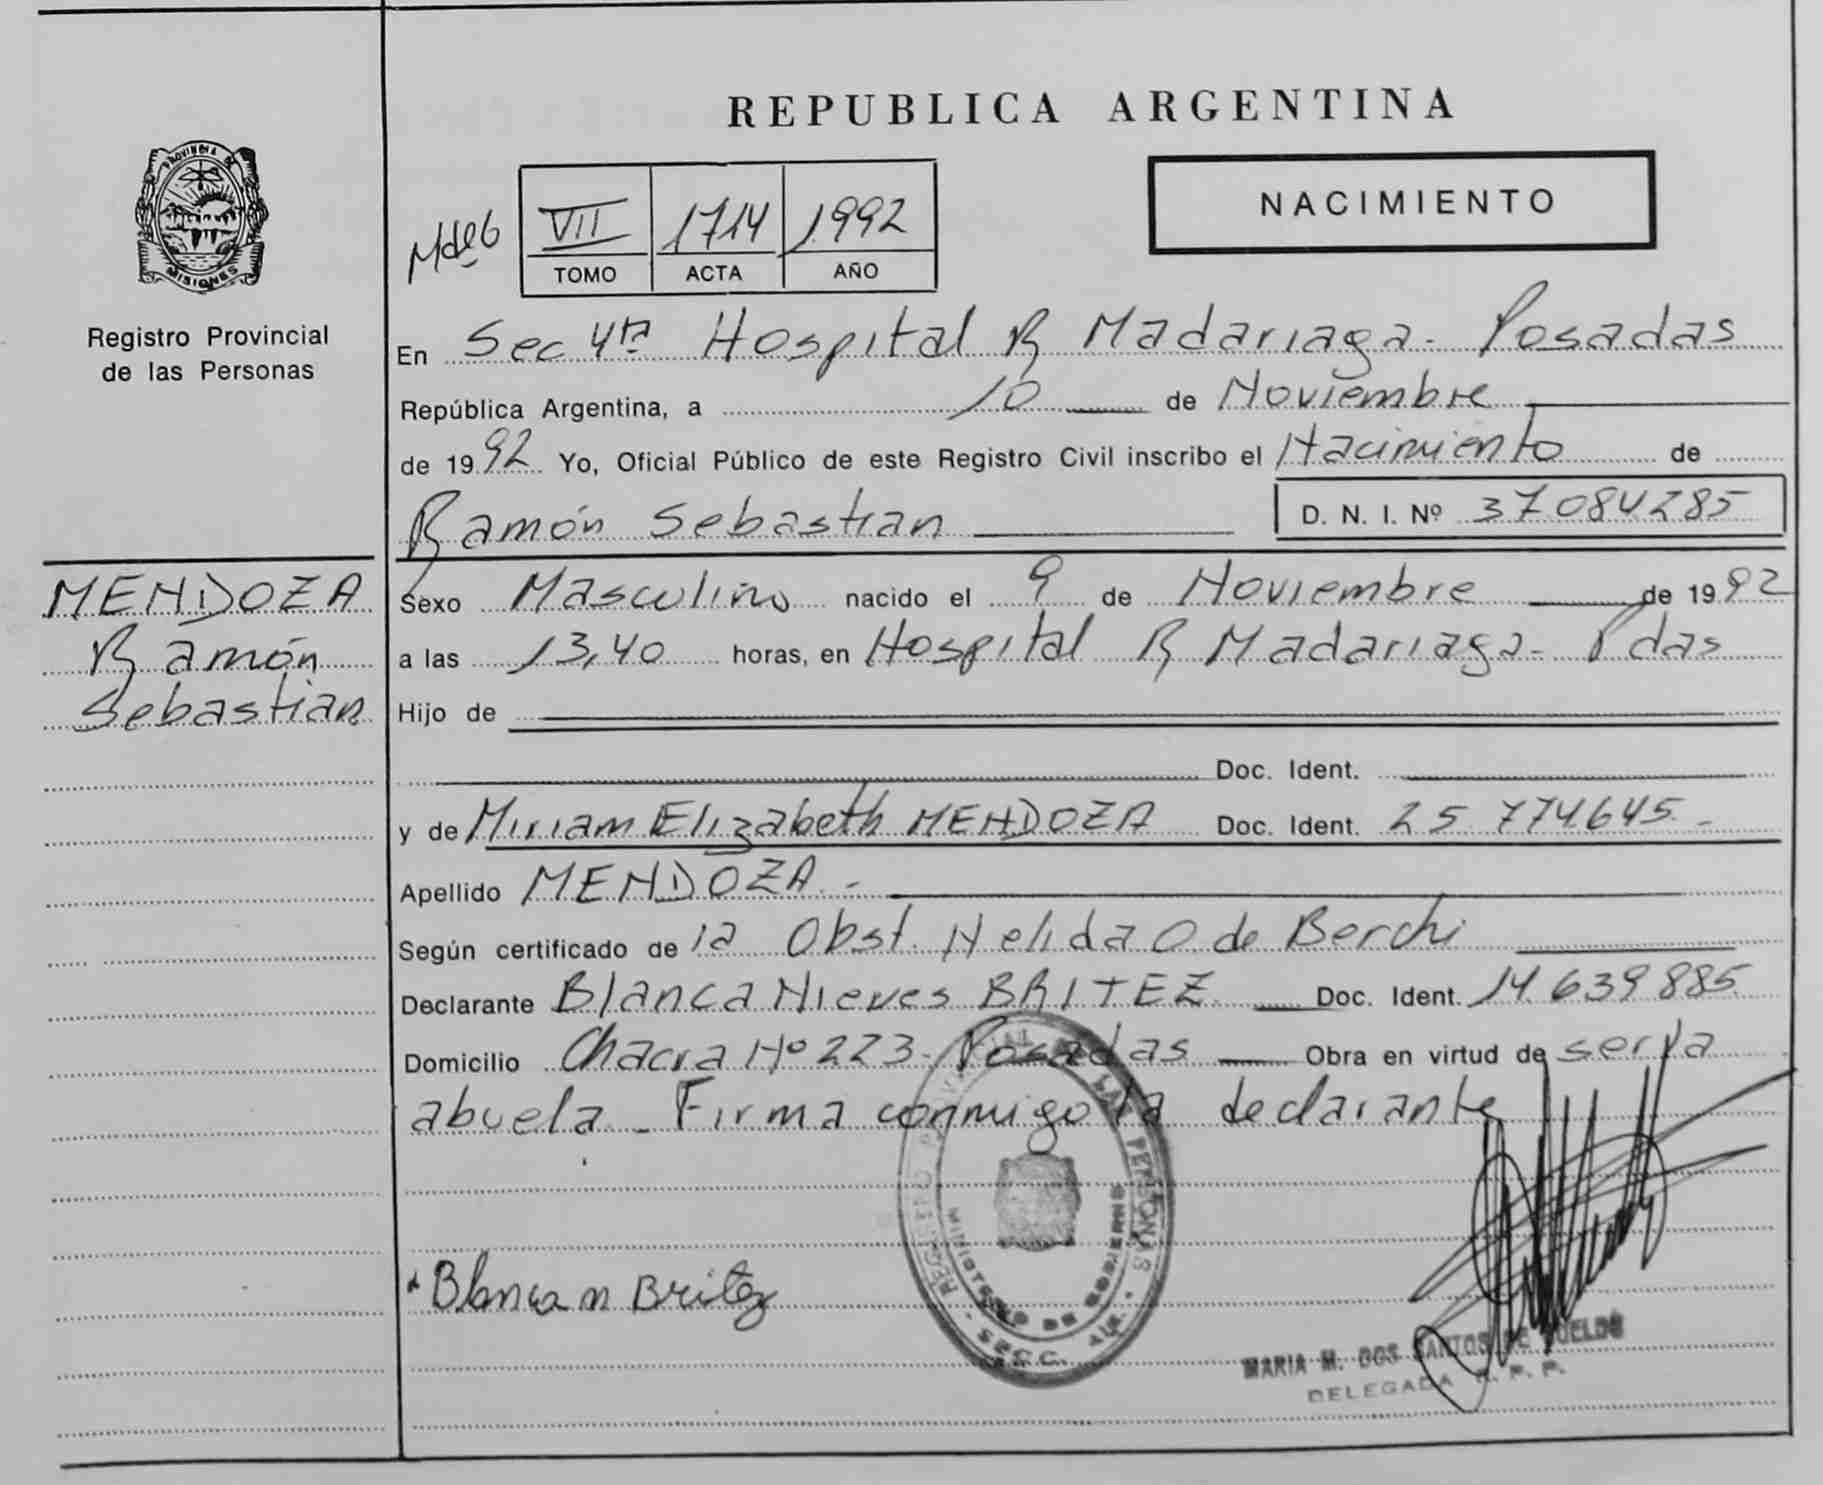 REPUBLICA ARGENTINA
PROVINCIA DE
MISIONES
Registro Provincial
de las Personas
VII 1714 1992
TOMO ACTA AÑO
NACIMIENTO
En Sec 4ta Hospital R Madariaga - Posadas
República Argentina, a 10 de Noviembre
de 1992 Yo, Oficial Público de este Registro Civil inscribo el Nacimiento de
Ramón Sebastian D. N. I. Nº 37084285
MENDOZA
Ramón
Sebastian
Sexo Masculino nacido el 9 de Noviembre de 1992
a las 13,40 horas, en Hospital R Madariaga - Pdas
Hijo de
Doc. Ident.
y de Miriam Elizabeth MENDOZA Doc. Ident. 25.774.645.-
Apellido MENDOZA.-
Según certificado de la Obst. Nelida O. de Berchi
Declarante Blanca Nieves BRITEZ Doc. Ident. 14.639.885
Domicilio Chacra Nº 223 - Posadas Obra en virtud de ser la
abuela - Firma conmigo la declarante
REGISTRO PROVINCIAL DE LAS PERSONAS
MINISTERIO DE GOBIERNO
SECC. 4ta.
Blanca N Britez
MARIA M. DOS SANTOS DE
DELEGADA R. P. P.